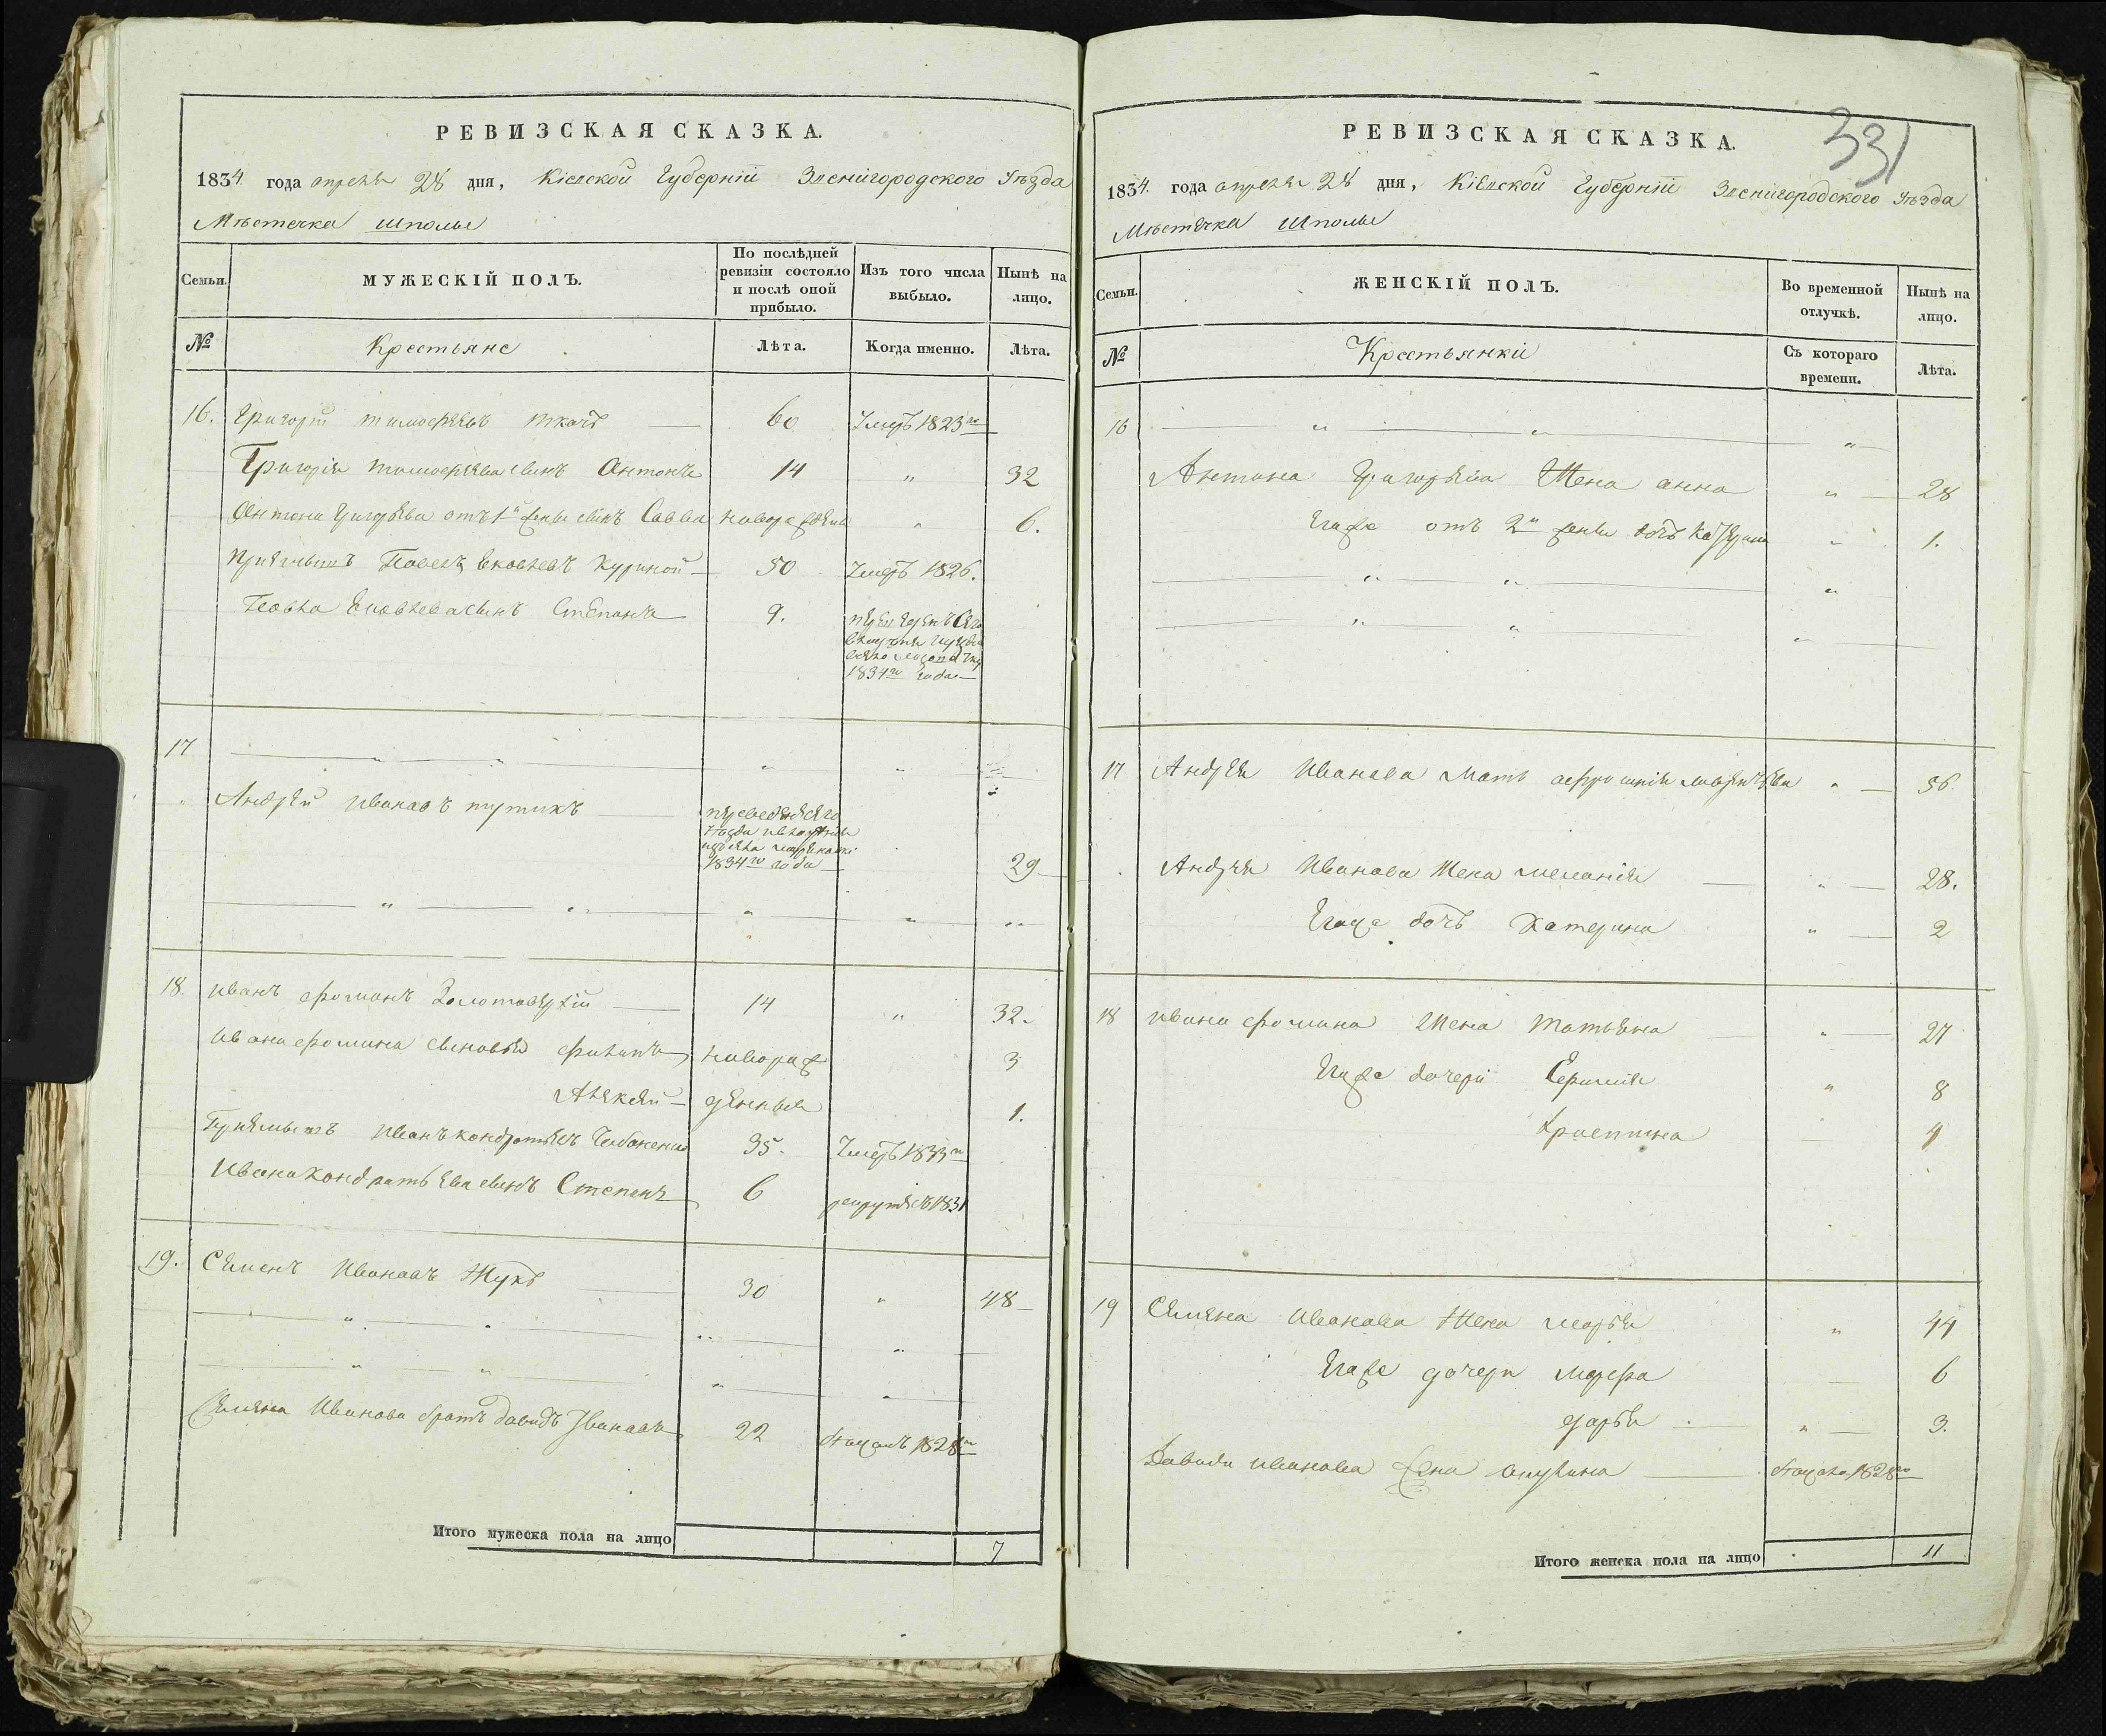 РЕВИЗСКАЯ СКАЗКА.
1834 года апреля 28 дня, Кіевской Губерніи Звенигородского Уѣзда
Мѣстечка Шполы
Семьи.
МУЖЕСКІЙ ПОЛЪ.
По послѣдней ревизіи состояло и послѣ оной прибыло.
Изъ того числа выбыло.
Нынѣ на лицо.
№
Крестьяне
Лѣта.
Когда именно.
Лѣта.
16. Григорій Тимофеевъ Ткачъ 60 Умеръ 1823го
Григорія Тимофеева сынъ Антонъ 14 " 32
Антона Григорьева отъ 1й жены сынъ Савва новорожденъ " 6.
Приемышъ Павелъ Яковлевъ Куриной 50 Умеръ 1826.
Павла Яковлева сынъ Степанъ 9.
1834го года
17 " " " "
Андрей Ивановъ Путикъ
1834го года 29
" " " " "
18. Иванъ Фоминъ Золотоверхій 14 " 32.
Ивана Фомина сыновья Филипъ новорож 3
Алексей денныя 1.
Приемышъ Иванъ Кондратьевъ 35. Умеръ 1833го
Ивана Кондратьева сынъ Степанъ 6 рекрутъ въ 1831
19. Семенъ Ивановъ Жукъ 30 " 48
" " " "
" " " "
Семена Иванова братъ Давидъ Ивановъ 22 1828го
Итого мужеска пола на лицо 7
331
РЕВИЗСКАЯ СКАЗКА.
1834. года апреля 28 дня, Кіевской Губерніи Звенигородского Уѣзда
Мѣстечка Шполы
Семьи.
ЖЕНСКІЙ ПОЛЪ.
Во временной отлучкѣ.
Нынѣ на лицо.
№
Крестьянки
Съ котораго времени.
Лѣта.
16 " " "
Антона Григорьева Жена Анна " 28
Егоже отъ 2й жены дочь Катерина " 1.
" " "
" " "
17 Андрея Иванова Мать " 56.
Андрея Иванова Жена Меланія " 28.
Егоже дочь Катерина " 2
18 Ивана Фомина Жена Татьяна " 27
Егоже дочери Ефимія " 8
Христина 4
19 Семена Иванова Жена Марья " 44
Егоже дочери Марфа 6
Дарья " 3.
Давида Иванова жена Акулина 1828го
Итого женска пола на лицо 11